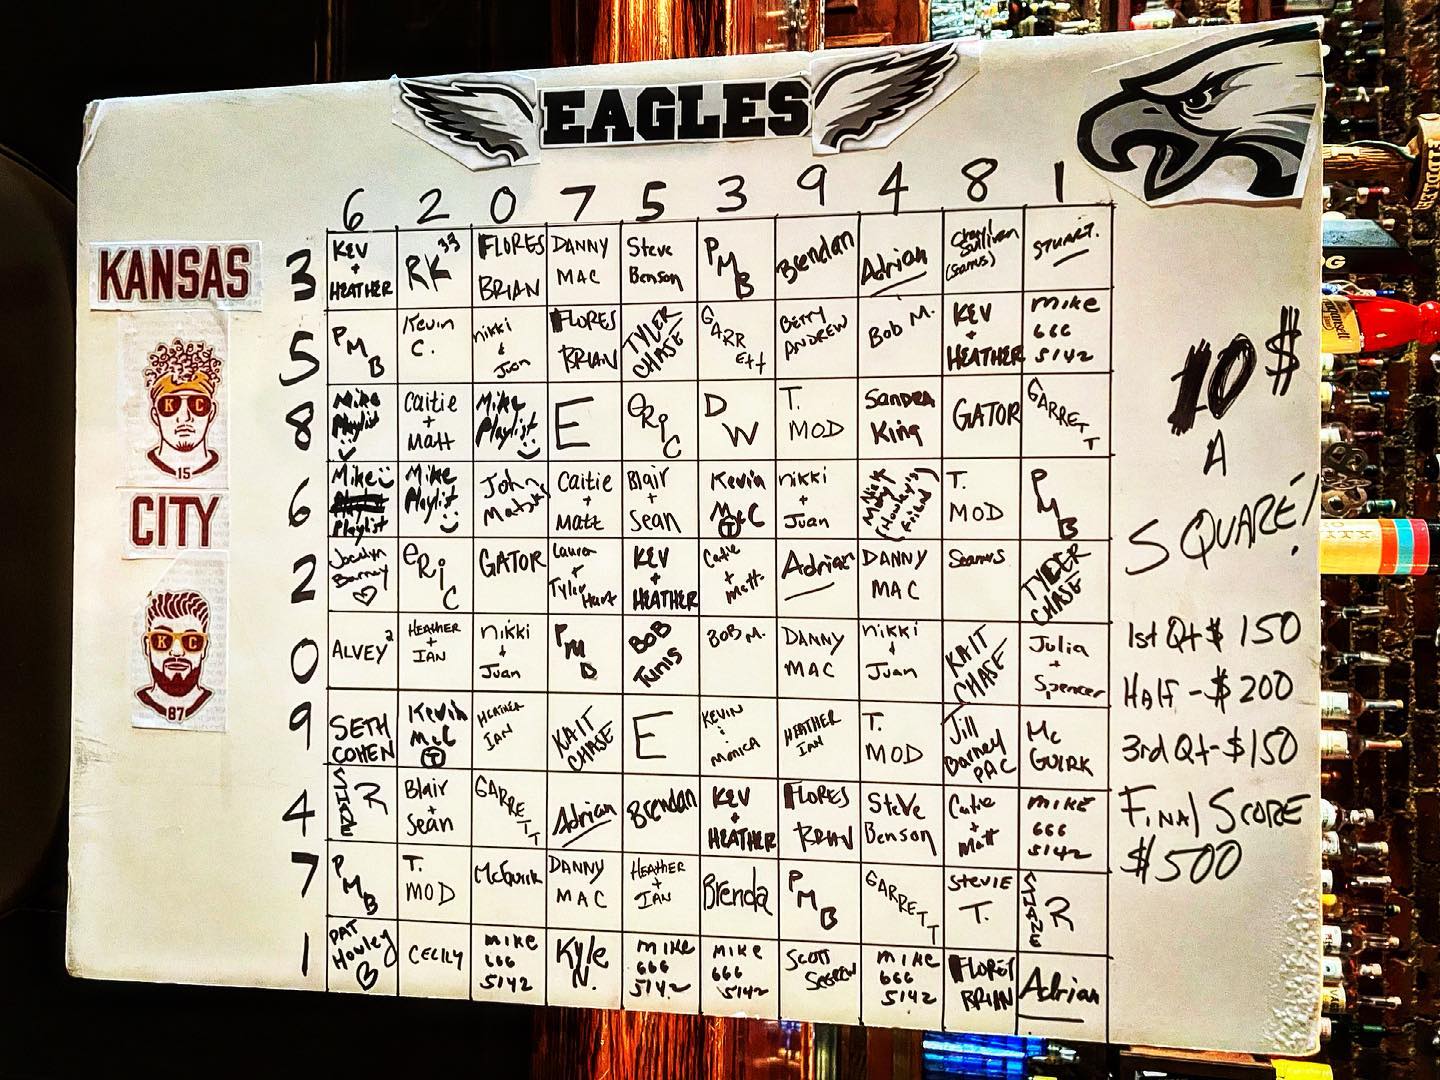 EAGLES
6 2 0 7 5 3 9 4 8 1
KANSAS
K C
15
CITY
K C
87
3 KEV + HEATHER RK 33 FLORES BRIAN DANNY MAC Steve Benson PMB Brendan Adrian Sullivan (Seamus) STUART.
5 PMB Kevin C. nikki + Juan FLORES BRIAN TYLER CHASE GARRETT BETTY ANDREW BOB M. KEV + HEATHER MIKE 666 5142
8 Mike Playlist Caitie + Matt Mike Playlist E ERIC DW T. MOD Sandra King GATOR GARRETT
6 Mike Playlist Mike Playlist John Caitie + Matt Blair + Sean Kevin McC T nikki + Juan Nick (Howley's Friend) T. MOD PMB
2 Jocelyn Barney ERIC GATOR Lauren + Tyler Hart KEV + HEATHER Catie + Matt Adrian DANNY MAC Seamus TYLER CHASE
0 ALVEY 2 HEATHER + IAN nikki + Juan PMB BOB Tunis BOB M. DANNY MAC nikki + Juan KAIT CHASE Julia + Spencer
9 SETH COHEN Kevin McC T HEATHER IAN KAIT CHASE E KEVIN + MONICA HEATHER IAN T. MOD Jill Barney PAC Mc GUIRK
4 SHANE R Blair + Sean GARRETT Adrian Brendan KEV + HEATHER FLORES BRIAN Steve Benson Catie + Matt MIKE 666 5142
7 PMB T. MOD McGuirk DANNY MAC HEATHER + IAN Brenda PMB GARRETT STEVIE T. SHANE R
1 PAT Howley CECILY MIKE 666 5142 Kyle N. MIKE 666 5142 MIKE 666 5142 SCOTT MIKE 666 5142 FLORES BRIAN Adrian
10 $
A
SQUARE!
1st Qt $ 150
HALF - $ 200
3rd Qt - $150
FINAL SCORE
$500